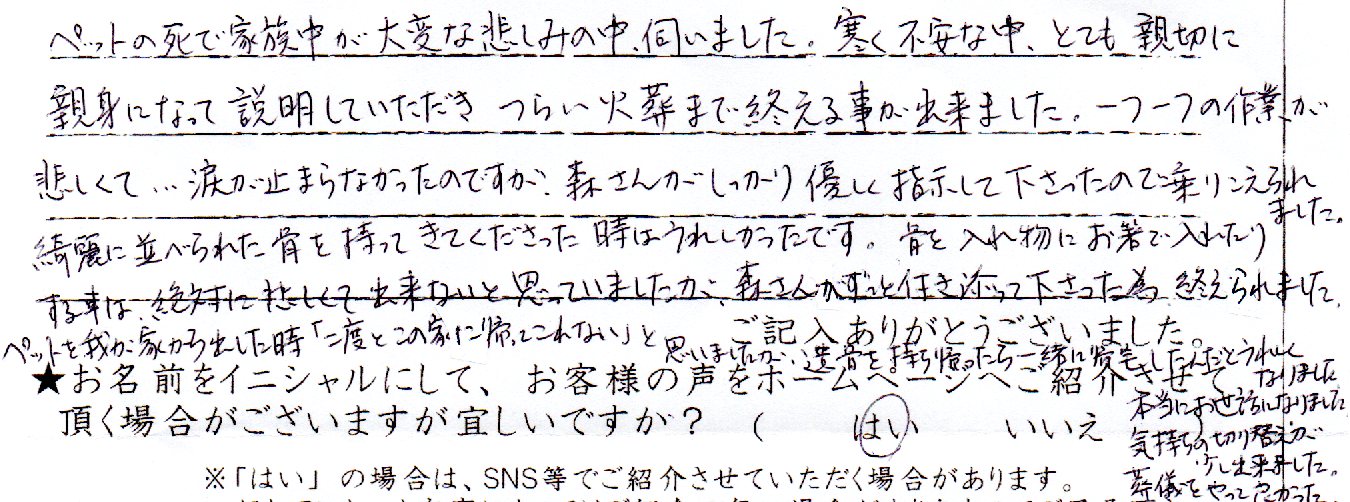 ペットの死で家族中が大変な悲しみの中、伺いました。寒く不安な中、とても親切に
親身になって説明していただき つらい火葬まで終える事が出来ました。一つ一つの作業が
悲しくて…涙が止まらなかったのですが、森さんがしっかり優しく指示して下さったので乗りこえられ
ました。
綺麗に並べられた骨を持ってきてくださった時はうれしかったです。骨を入れ物にお箸で入れたり
する事は、絶対に悲しくて出来ないと思っていましたが、森さんがずっと付き添って下さった為、終えられました。
ペットを我が家から出した時「二度とこの家に帰ってこれない」と
思いましたが、遺骨を持ち帰ったら一緒に帰宅したんだとうれしく
なりました
本当にお世話になりました
気持ちの切り替えが
少し出来ました。
葬儀をやって良かった。
ご記入ありがとうございました。
★お名前をイニシャルにして、お客様の声をホームページへご紹介させて
頂く場合がございますが宜しいですか？（ はい いいえ
※「はい」の場合は、SNS等でご紹介させていただく場合があります。